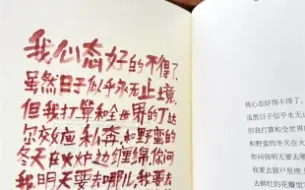 我心态好的不得了,
虽然日子似乎永无止境,
但我打算和全世界的丁达
尔效应私奔和野蛮的
冬天在火炉边缠绵,你问
我明天要去哪儿,我要去
我心态好得不得了,
虽然日子似乎永无止
但我打算和全世界
和野蛮的冬天在火
你问我明天要去
我要去
去鲜红的花瓣